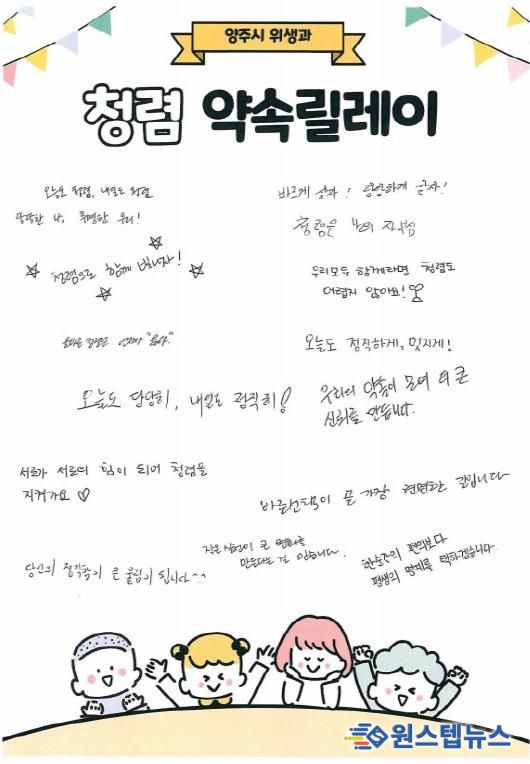 양주시 위생과
청렴 약속릴레이
오늘도 청렴, 내일도 청렴
당당한 나, 투명한 우리!
바르게 살자! 당당하게 살자!
청렴은 나의 자부심
청렴으로 함께 빛나자!
우리모두 함께라면 청렴도
어렵지 않아요!
언제나 "옳다."
오늘도 정직하게, 멋지게!
오늘도 당당히, 내일도 정직히!
우리의 약속이 모여 더 큰
신뢰를 만듭니다.
서로가 서로의 힘이 되어 청렴을
지켜가요 ♡
바른선택이 곧 가장 현명한 길입니다
작은 실천이 큰 변화를
만든다는 걸 믿습니다.
당신의 정직함이 큰 울림이 됩니다~^
한순간의 편의보다
평생의 명예를 택하겠습니다.
원스텝뉴스